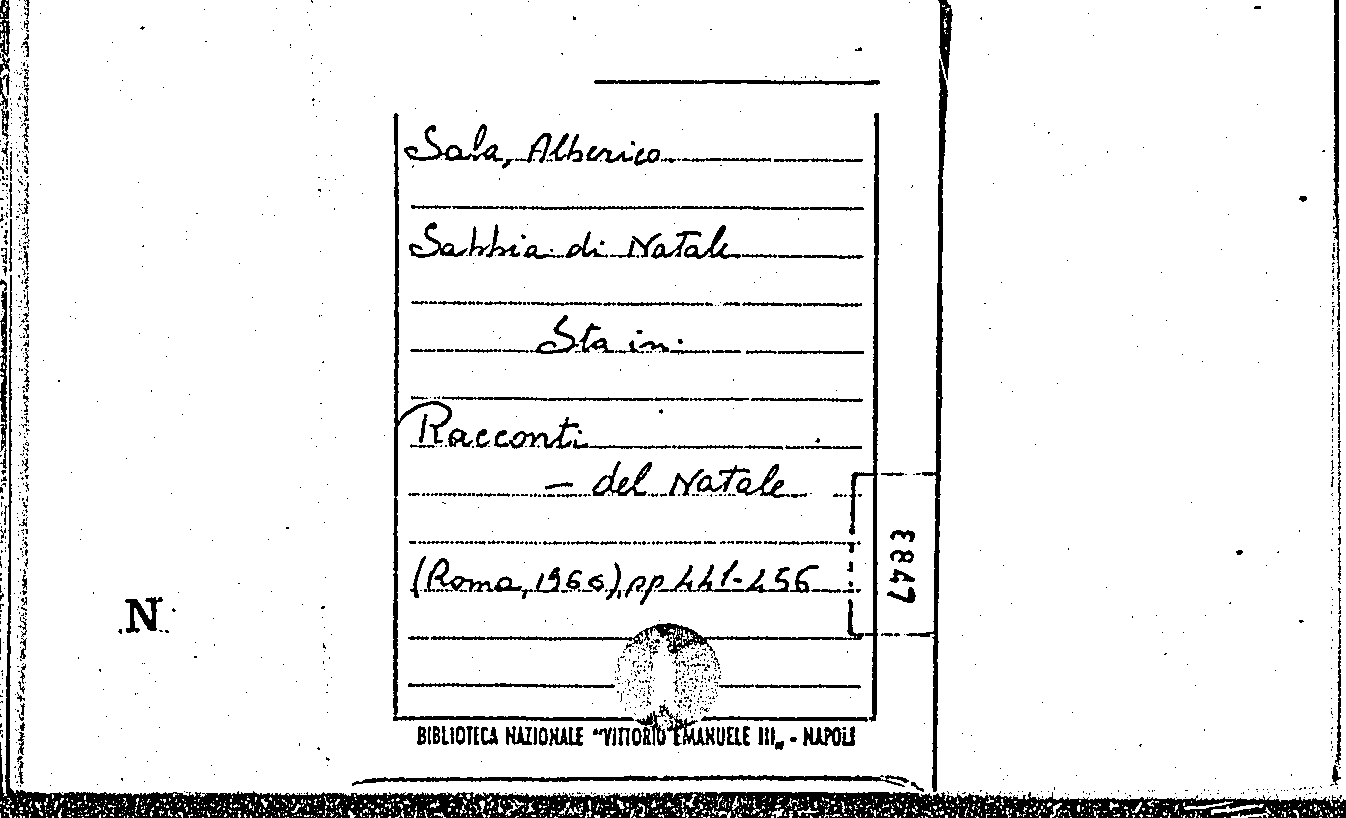 Sala, Alberico
Sabbia di Natale
Sta in:
Racconti
— del Natale
(Roma, 1966), pp 441-456
E847
N
BIBLIOTECA NAZIONALE "VITTORIO EMANUELE III„ - NAPOLI